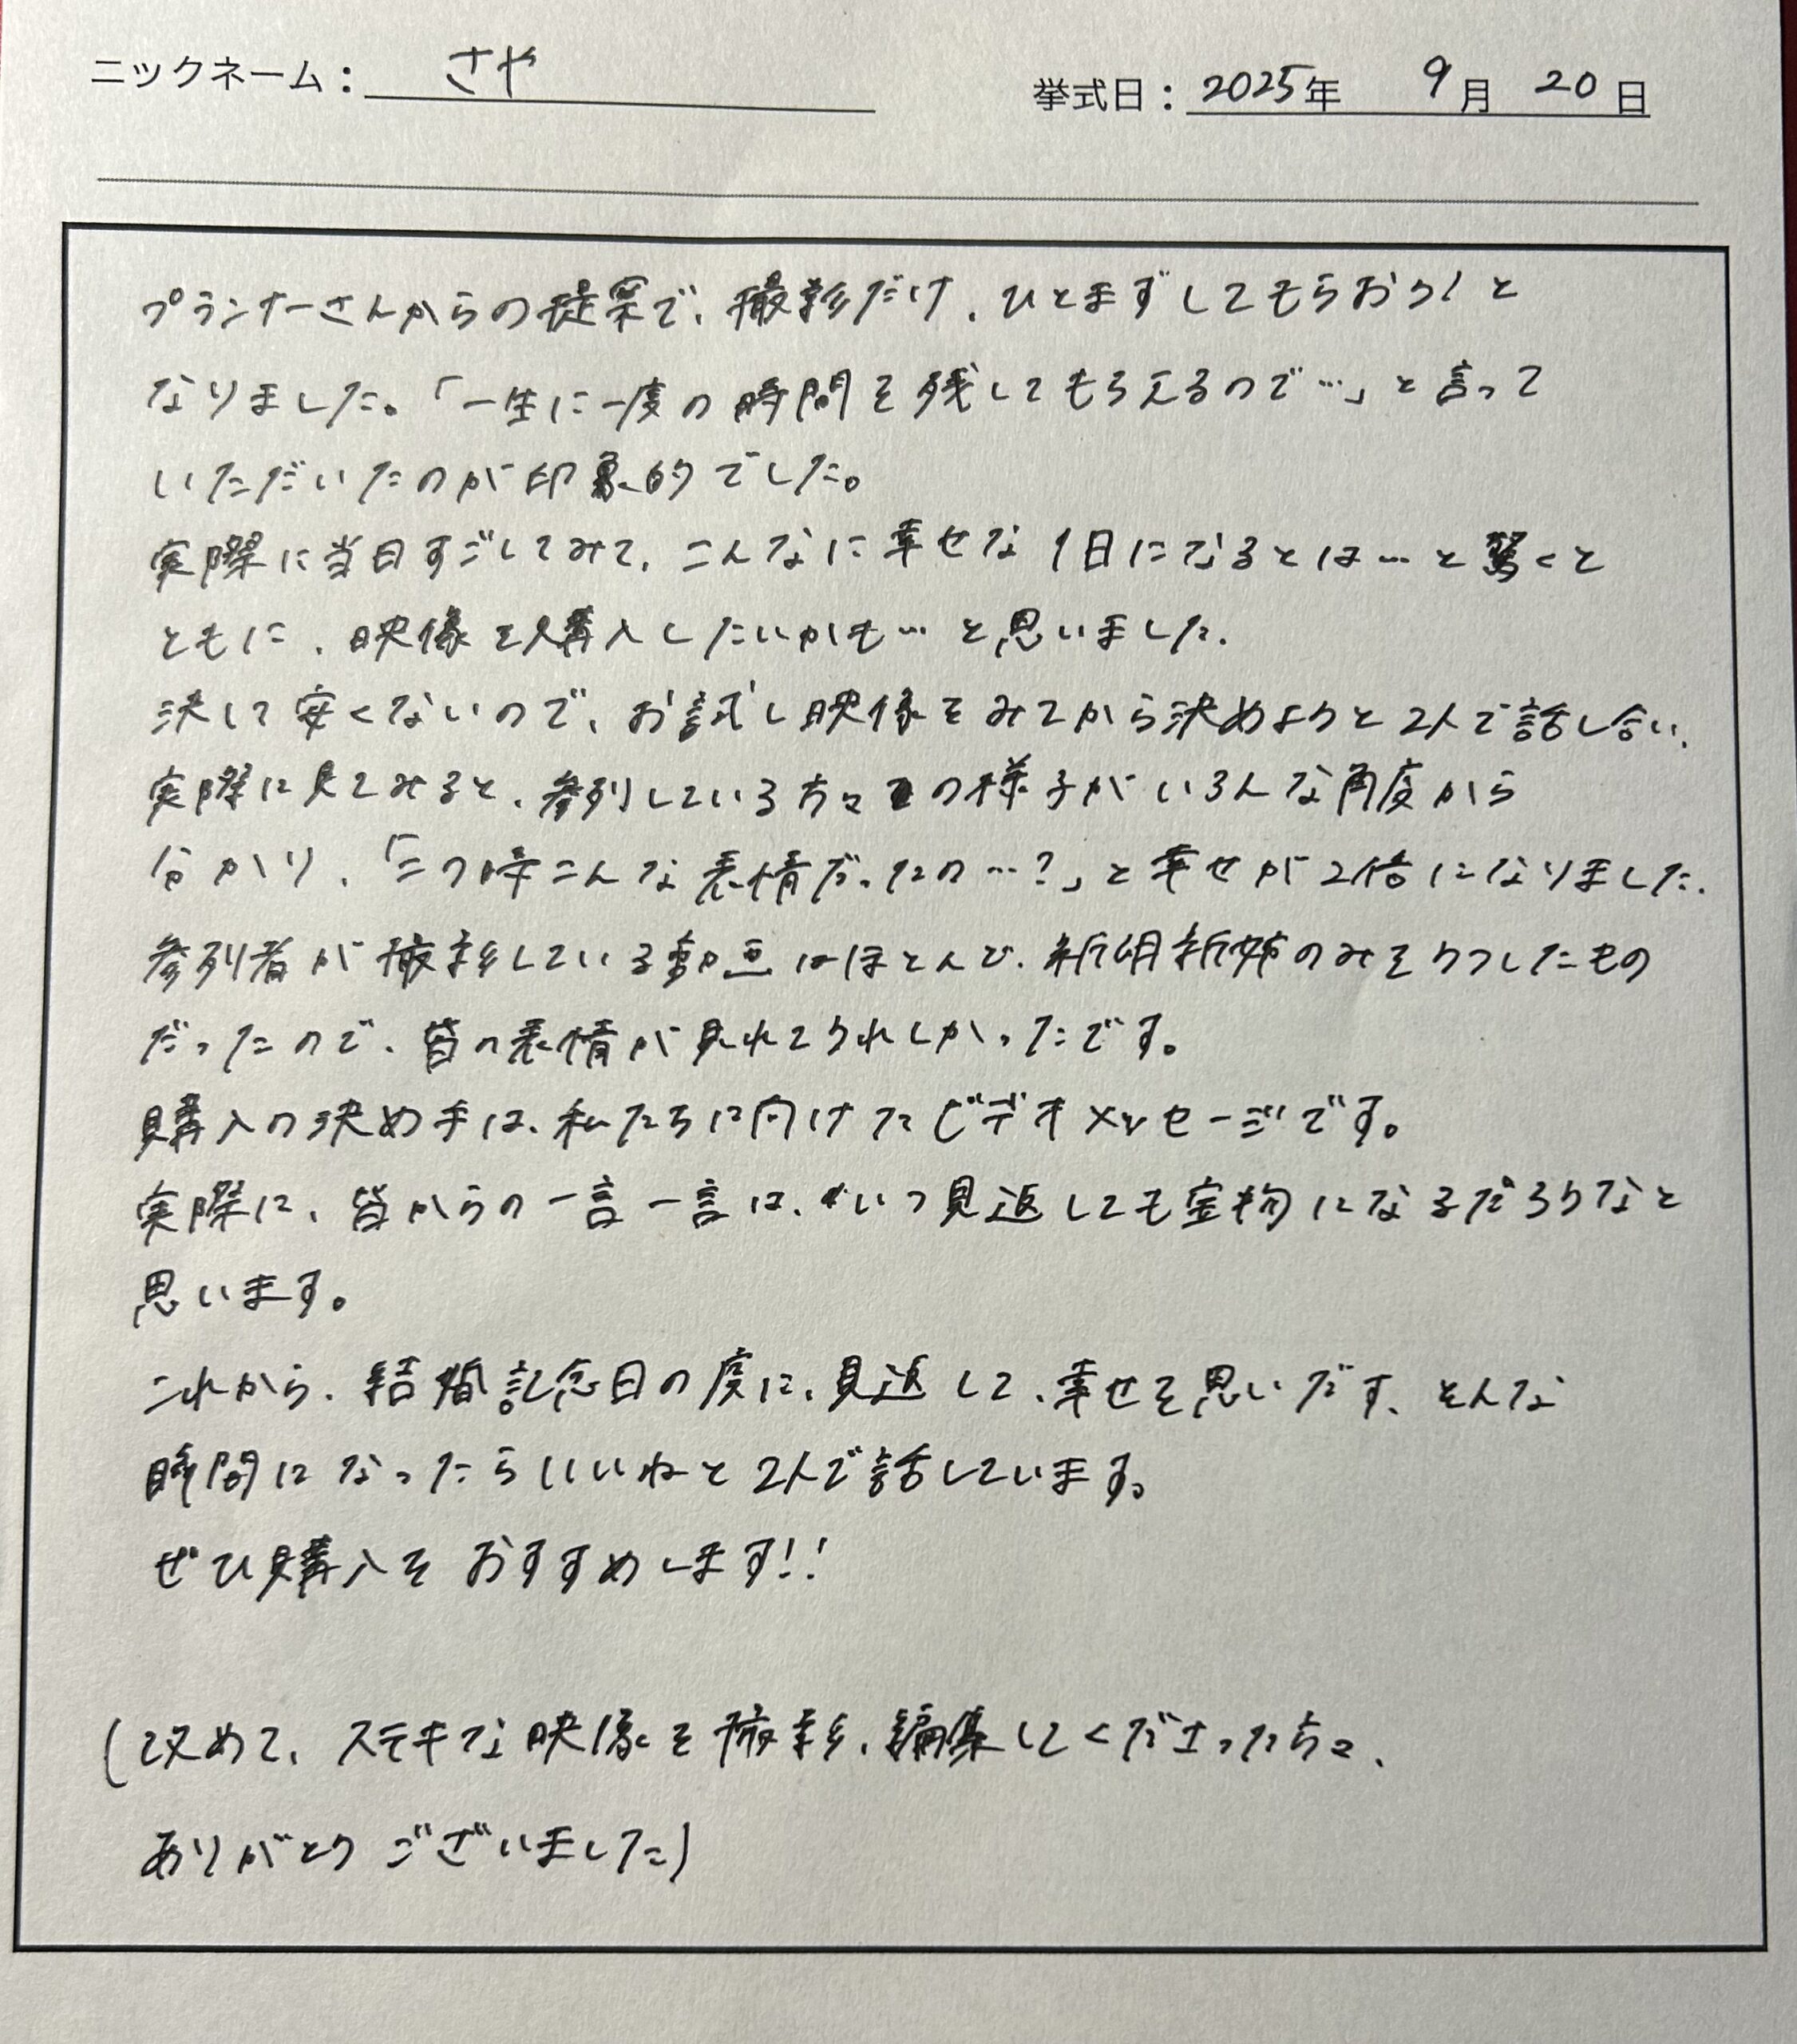 ニックネーム： さや
挙式日： 2025年 9月 20日
プランナーさんからの提案で、撮影だけ、ひとまずしてもらおう！と
なりました。「一生に一度の時間を残してもらえるので…」と言って
いただいたのが印象的でした。
実際に当日すごしてみて、こんなに幸せな1日になるとは…と驚くと
ともに、映像を購入したいかも…と思いました。
決して安くないので、お試し映像をみてから決めようと2人で話し合い、
実際に見てみると、参列している方々の様子がいろんな角度から
分かり、「この時こんな表情だったの…？」と幸せが2倍になりました。
参列者が撮影している動画はほとんど、新郎新婦のみをうつしたもの
だったので、皆の表情が見れてうれしかったです。
購入の決め手は、私たちに向けたビデオメッセージです。
実際に、皆からの一言一言は、いつ見返しても宝物になるだろうなと
思います。
これから、結婚記念日の度に、見返して、幸せを思いだす、そんな
時間になったらいいねと2人で話しています。
ぜひ購入をおすすめします！！
(改めて、ステキな映像を撮影、編集してくださった方々、
ありがとうございました)